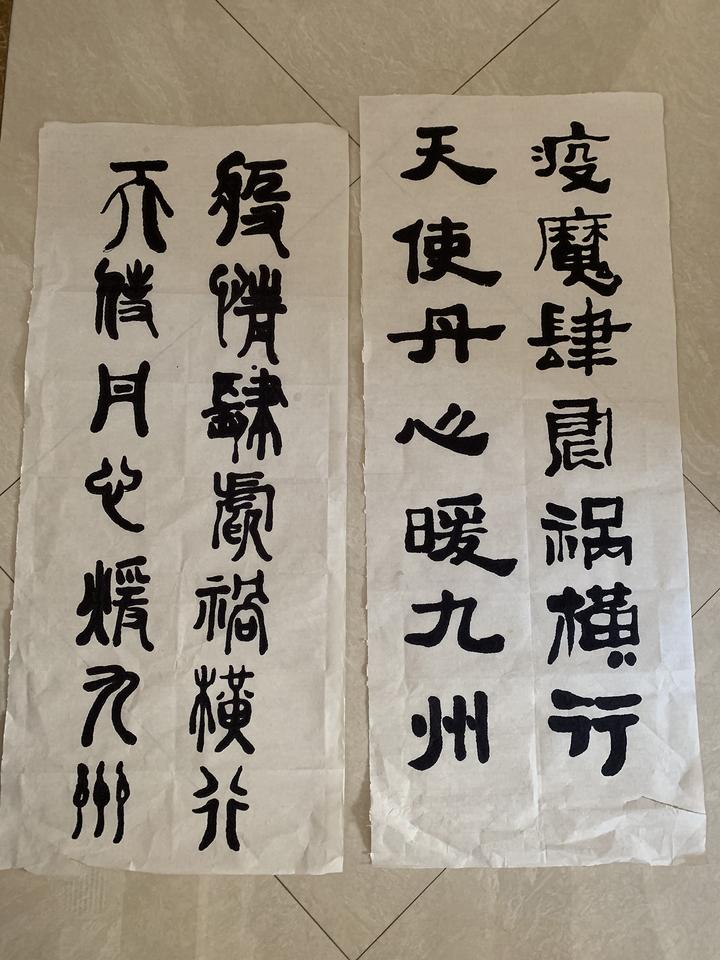 疫魔肆虐祸横行
天使丹心暖九州
疫情肆虐禍橫行
天使丹心煖九州